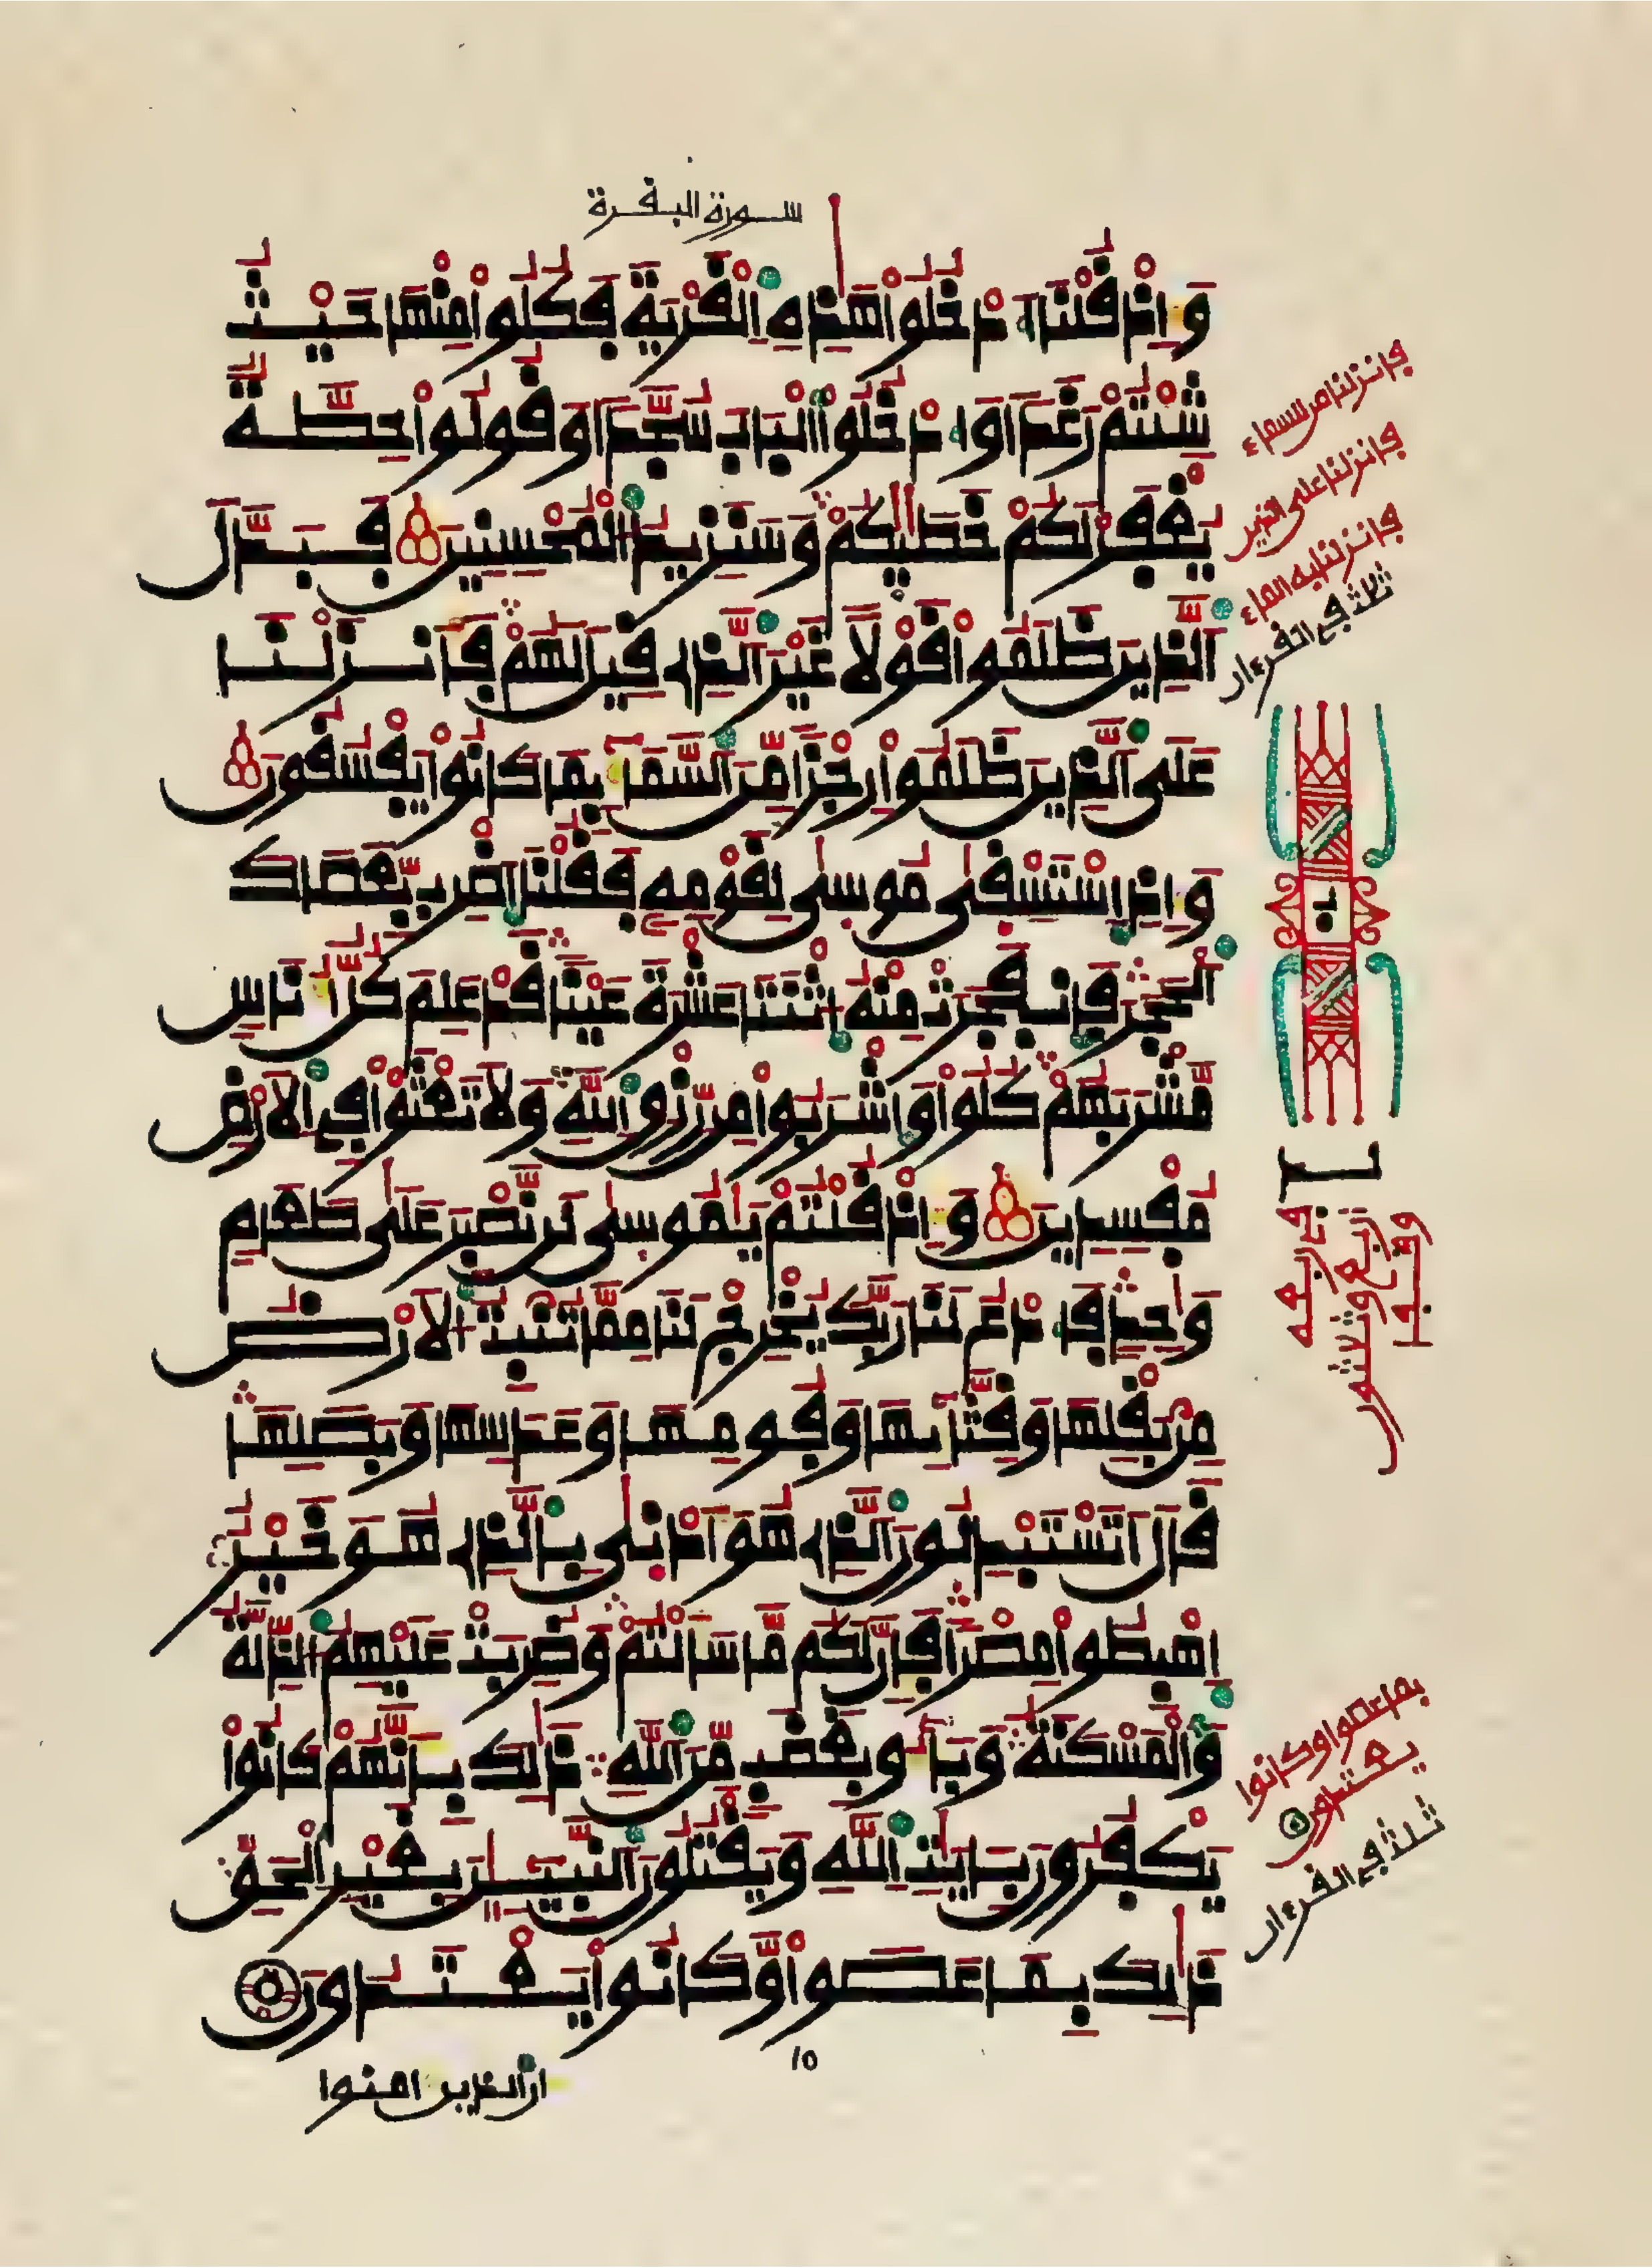 سورة البفرة
وَإِذْ فُلْنَا اَدْخُلُواْ هَٰذِهِ اِلْفَرْيَةَ فَكُلُواْ مِنْهَا حَيْثُ
شِئْتُمْ رَغَداً وَادْخُلُواْ اُلْبَابَ سُجَّداً وَفُولُواْ حِطَّةٌ
يُغْفَرْ لَكُمْ خَطَٰيَٰكُمْ وَسَنَزِيدُ اُلْمُحْسِنِينَ فَبَدَّلَ
اَلذِينَ ظَلَمُواْ فَوْلًا غَيْرَ اَلذِے فِيلَ لَهُمْ فَأَنزَلْنَا
عَلَى اَلذِينَ ظَلَمُواْ رِجْزاً مِّنَ اَلسَّمَآءِ بِمَا كَانُواْ يَفْسُفُونَ
وَإِذِ اِسْتَسْفَىٰ مُوسَىٰ لِفَوْمِهِۦ فَفُلْنَا اَضْرِب بِّعَصَاكَ
اَلْحَجَرَ فَانفَجَرَتْ مِنْهُ اُثْنَتَا عَشْرَةَ عَيْناً فَدْ عَلِمَ كُلُّ أُنَاسٍ
مَّشْرَبَهُمْ كُلُواْ وَاشْرَبُواْ مِن رِّزْقِ اِللَّهِ وَلَا تَعْثَوْاْ فِے اِلَارْضِ
مُفْسِدِينَ وَإِذْ فُلْتُمْ يَٰمُوسَىٰ لَن نَّصْبِرَ عَلَىٰ طَعَامٍ
وَٰحِدٍ فَادْعُ لَنَا رَبَّكَ يُخْرِجْ لَنَا مِمَّا تُنۢبِتُ اُلَارْضُ
مِنۢ بَفْلِهَا وَفِثَّآئِهَا وَفُومِهَا وَعَدَسِهَا وَبَصَلِهَا
فَالَ أَتَسْتَبْدِلُونَ اَلذِے هُوَ أَدْنَىٰ بِالذِے هُوَ خَيْرٌ
اِهْبِطُواْ مِصْراً فَإِنَّ لَكُم مَّا سَأَلْتُمْ وَضُرِبَتْ عَلَيْهِمُ اُلذِّلَّةُ
وَالْمَسْكَنَةُ وَبَآءُو بِغَضَبٍ مِّنَ اَللَّهِ ذَٰلِكَ بِأَنَّهُمْ كَانُواْ
يَكْفُرُونَ بِـَٔايَٰتِ اِللَّهِ وَيَفْتُلُونَ اَلنَّبِيٓـِٕينَ بِغَيْرِ اِلْحَقِّ
ذَٰلِكَ بِمَا عَصَواْ وَّكَانُواْ يَعْتَدُونَ
١٥
ان الذين امنوا
فانزلنا من السماء
فانزلنا على الذين
فانزلنا به الماء
ثلث في الفرءان
بما عصوا وكانوا
يعتدون
ثلث في الفرءان